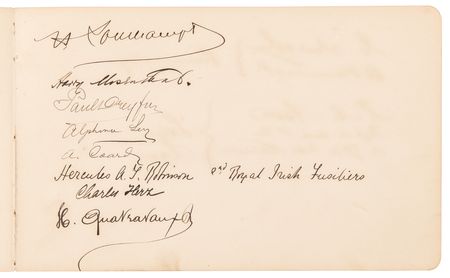 Harry Mosenthal.
Paul Dreyfus
Alphonse Levy
A.
Hercules A. T. Robinson 2nd Royal Irish Fusiliers
Charles Herz
H. Quatravaux